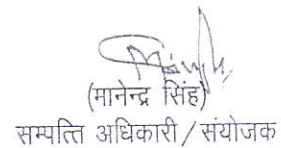 (मानेन्द्र सिंह)
सम्पत्ति अधिकारी / संयोजक